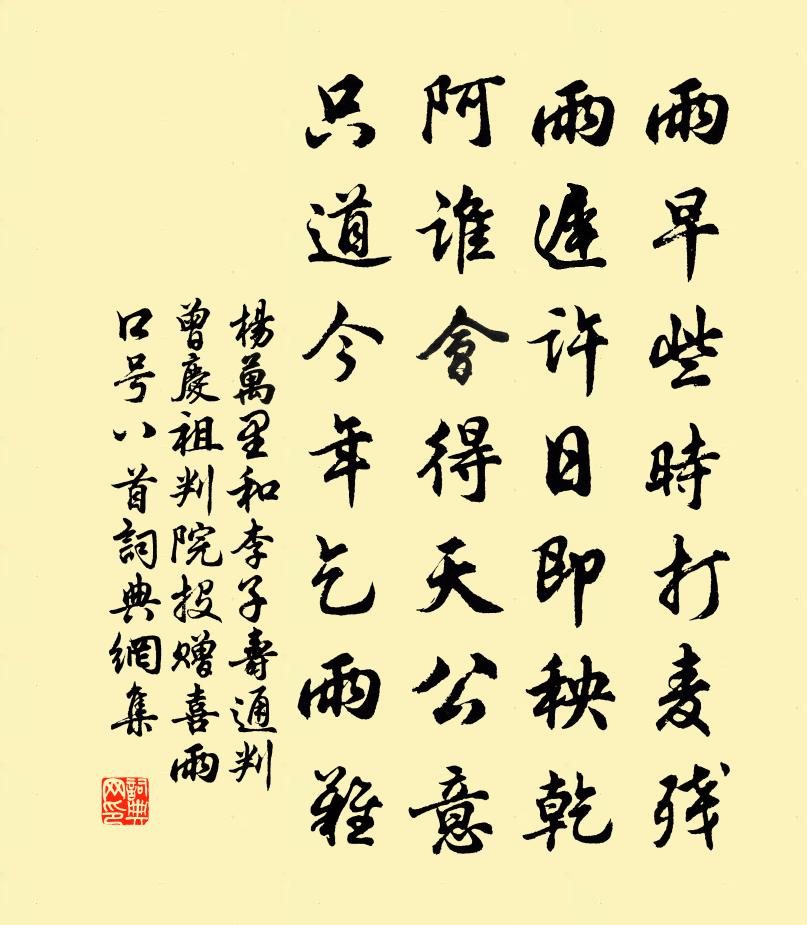 雨早些時打麦残
雨遲許日即秧乾
阿誰會得天公意
只道今年乞雨難
楊萬里和李子壽通判
曾慶祖判院投贈喜雨
口号八首詞典網集
詞典网印